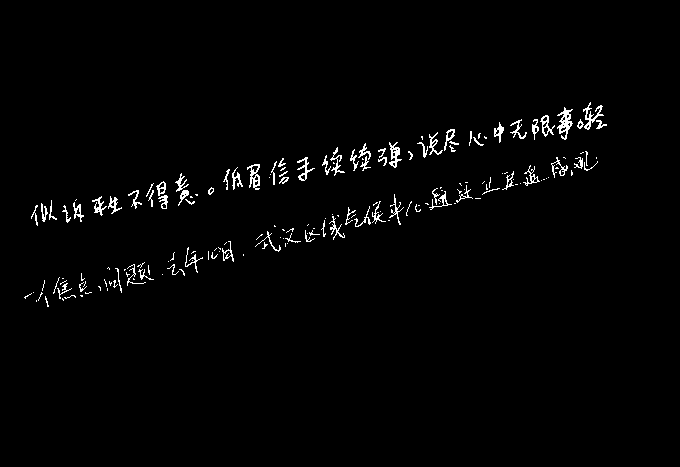 似诉平生不得意。低眉信手续续弹，说尽心中无限事。轻
一个焦点问题.去年10月.武汉区域气候中心通过卫星遥感观